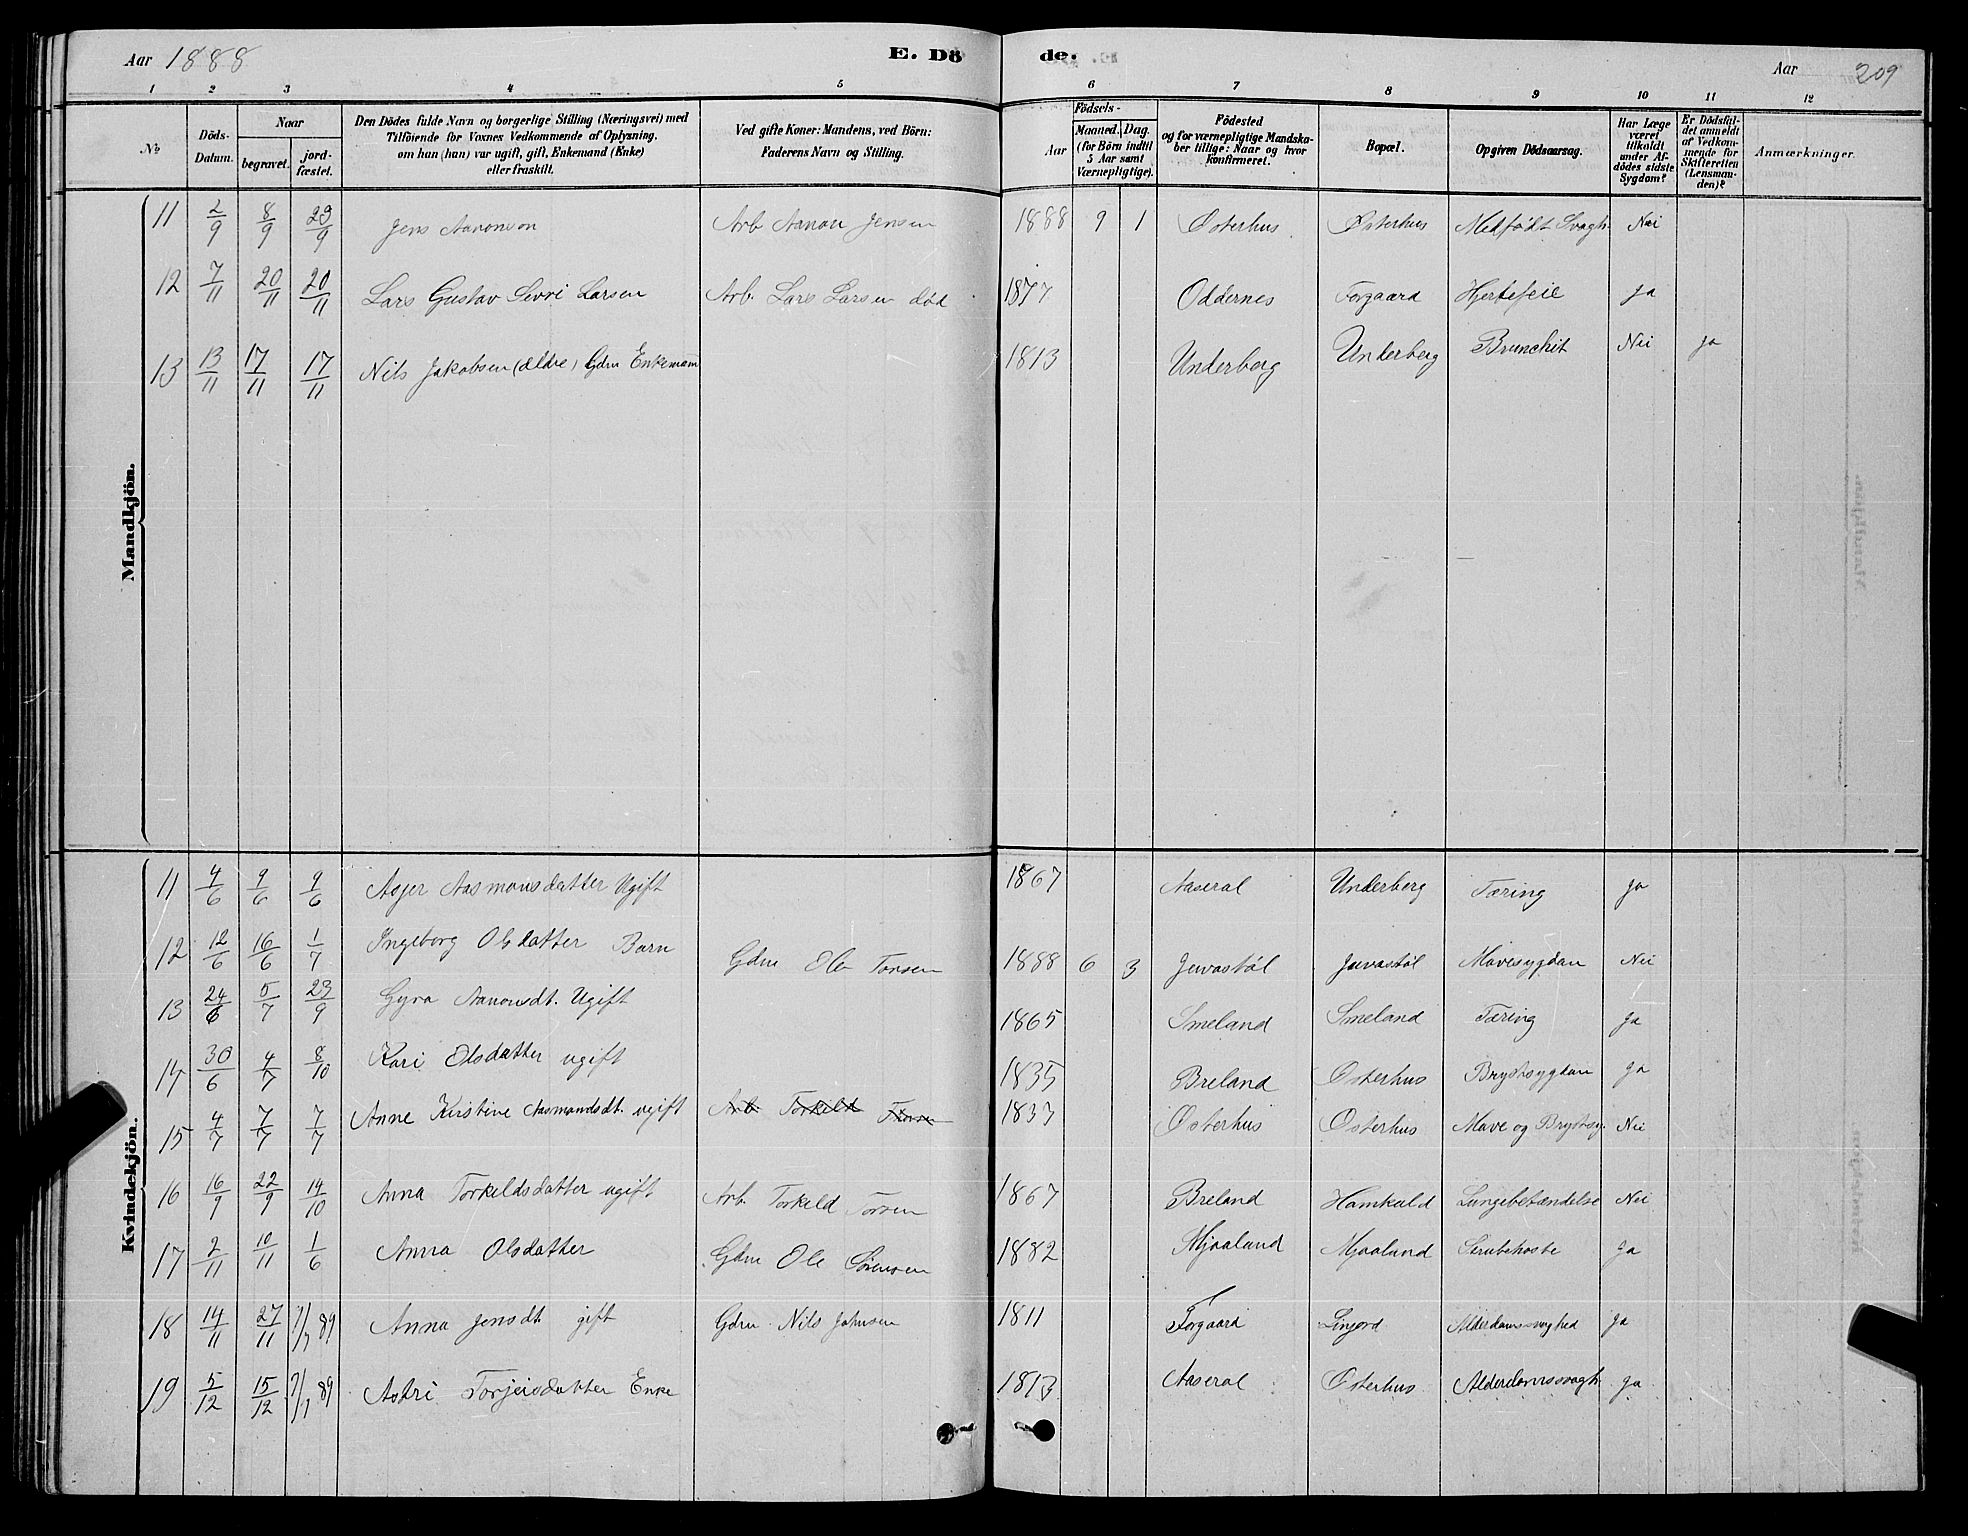 Aar 1888 E. Döde. Aar 209
1 2 3 4 5 6 7 8 9 10 11 12
№ Döds-Datum. Naar begravet. jord-fæstet. Den Dödes fulde Navn og borgerlige Stilling (Næringsvei) med Tilföiende for Voxnes Vedkommende af Oplysning, om han (hun) var ugift, gift, Enkemand (Enke) eller fraskilt. Ved gifte Koner: Mandens, ved Börn: Faderens Navn og Stilling. Födsels- Aar Maaned. Dag. (for Börn indtil 5 Aar samt Værnepligtige). Födested og for værnepligtige Mandska-ber tillige: Naar og hvor Konfirmeret. Bopæl. Opgiven Dödsaarsag. Har Læge været tilkaldt under Af-dödes sidste Sygdom? Er Dödsfal-det anmeldt af Vedkom-mende for Skifteretten (Lensman-den)? Anmærkninger.
Mandkjön.
11 2/9 8/9 29/9 Jens Aanonson Arb Aanon Jensen 1888 9 1 Østerhus Østerhus Medfødt Svagh. Nei
12 7/11 20/11 20/11 Lars Gustav Sevri Larsen Arb. Lars Larsen død 1877 Oddernes Forgaard Hjertefeil ja
13 13/11 17/11 17/11 Nils Jakobsen (ældre) Gdm Enkemann 1813 Underberg Underberg Brunchit Nei ja
Kvindekjön.
11 4/6 9/6 9/6 Asjer Aasmonsdatter Ugift 1867 Aaseral Underberg Tæring ja
12 12/6 16/6 1/7 Ingeborg Olsdatter Barn Gdm Ole Torsen 1888 6 3 Juvastøl Juvastøl Mavesygdan Nei
13 24/6 5/7 23/9 Gyra Aanonsdt. Ugift 1865 Smeland Smeland Tæring ja
14 30/6 4/7 8/10 Kari Olsdatter ugift 1835 Breland Østerhus Brystsygdan ja
15 4/7 7/7 7/7 Anne Kirstine Aasmundsdt. ugift Arb. Torkild 1837 Østerhus Østerhus Mave og Brystsy. Nei
16 16/9 22/9 14/10 Anna Torkeldsdatter ugift Arb. Torkeld Torsen 1867 Breland Homkald Lungebetændelse Nei
17 2/11 10/11 1/6 Anna Olsdatter Gdm Ole Sørensen 1882 Mjaaland Mjaaland Strubehoste ja
18 14/11 27/11 7/7 89 Anna Jensdt gift Gdm. Nils Johnsen 1811 Forgaard Linjord Alderdomssvaghed ja
19 5/12 15/12 7/7 89 Astri Torjeisdatter Enke 1813 Aaseral Østerhus Alderdomssvagh. ja